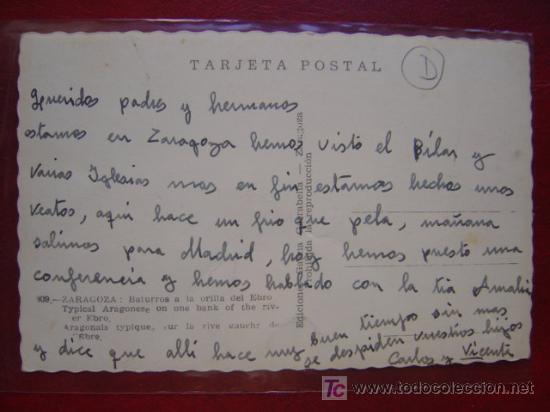 TARJETA POSTAL
D
Queridos padres y hermanos
estamos en Zaragoza hemos visto el Pilar y
varias Iglesias mas en fin estamos hechos unos
veatos, aqui hace un frio que pela, mañana
salimos para Madrid, hoy hemos puesto una
conferencia y hemos hablado con la tia Amalia
y dice que alli hace muy buen tiempo sin mas
se despiden vuestros hijos
Carlos y Vicente
909.—ZARAGOZA: Baturros a la orilla del Ebro
Typical Aragonese on one bank of the riv-
er Ebro.
Aragonais typique, sur la rive gauche de
l'Ebro.
Ediciones García Garrabella — Zaragoza
Prohibida la reproducción
TC todocoleccion
www.todocoleccion.net